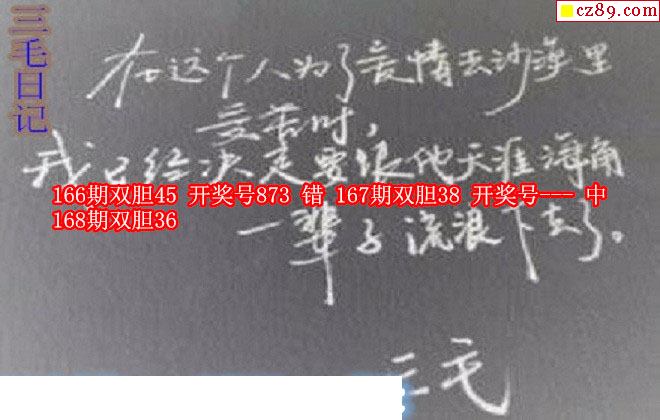 cz89.com
三毛日记
在这个人为了爱情去沙漠里
受苦时,
我已经决定要跟他天涯海角
166期双胆45 开奖号873 错 167期双胆38 开奖号--- 中
168期双胆36
一辈子流浪下去了。
三毛